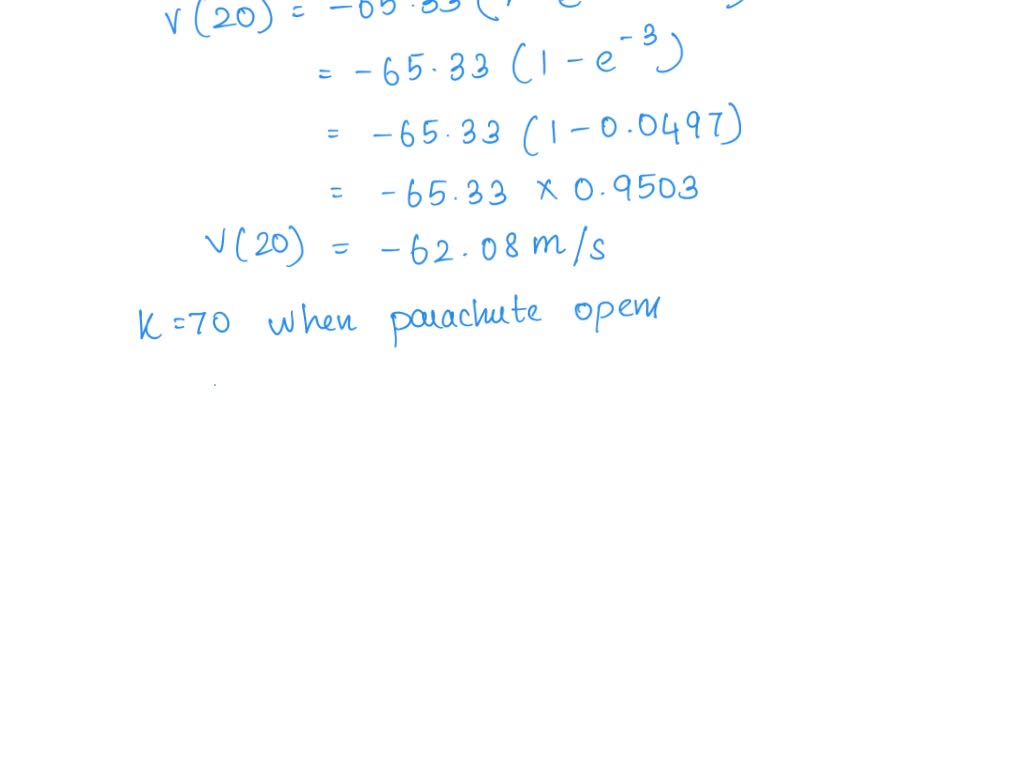 V(20) = -65.33 (1 - e
= -65.33 (1 - e⁻³)
= -65.33 (1 - 0.0497)
= -65.33 × 0.9503
V(20) = -62.08 m/s
K = 70 when parachute opens